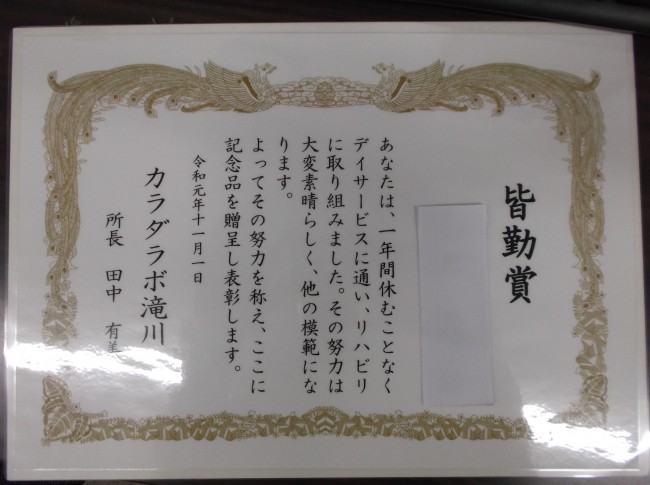 皆勤賞
あなたは、一年間休むことなく
デイサービスに通い、リハビリ
に取り組みました。その努力は
大変素晴らしく、他の模範にな
ります。
よってその努力を称え、ここに
記念品を贈呈し表彰します。
令和元年十一月一日
カラダラボ滝川
所長 田中 有美